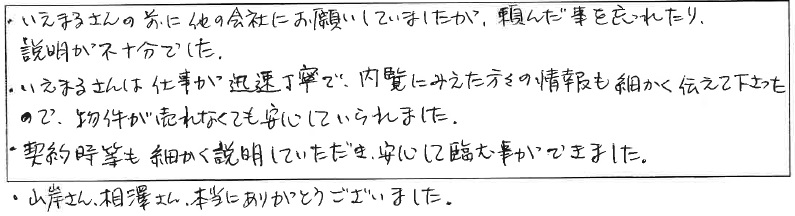 ・いえまるさんの前に他の会社にお願いしていましたが、頼んだ事を忘れたり、
説明が不十分でした。
・いえまるさんは仕事が迅速丁寧で、内覧にみえた方々の情報も細かく伝えて下さった
ので、物件が売れなくても安心していられました。
・契約時等も細かく説明していただき、安心して臨む事ができました。
・山岸さん、相澤さん、本当にありがとうございました。